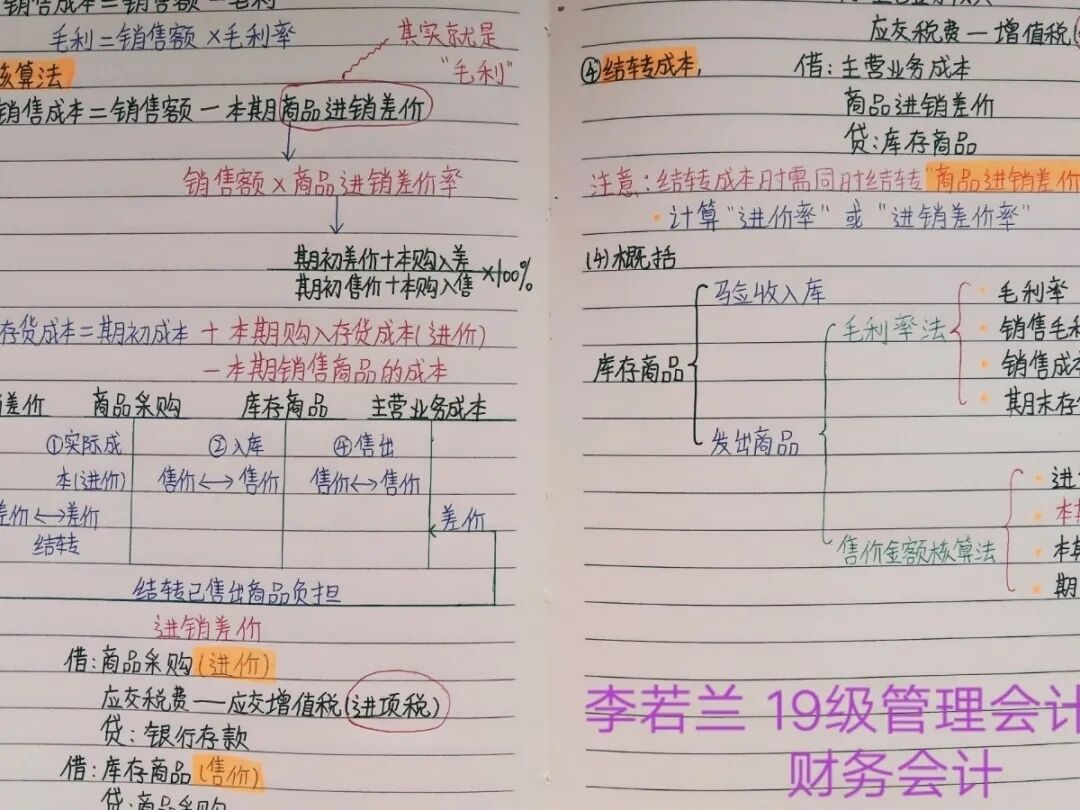 销售成本=销售额-毛利
毛利=销售额×毛利率
其实就是
"毛利"
核算法
销售成本=销售额-本期商品进销差价
销售额×商品进销差价率
期初差价+本购入差
期初售价+本购入售 ×100%
存货成本=期初成本+本期购入存货成本(进价)
-本期销售商品的成本
差价 商品采购 库存商品 主营业务成本
①实际成 ②入库 ④售出
本(进价) 售价↔售价 售价↔售价
差价↔差价 差价
结转
结转已售出商品负担
进销差价
借:商品采购(进价)
应交税费—应交增值税(进项税)
贷:银行存款
借:库存商品(售价)
贷:商品采购
应交税费—增值税(
④结转成本, 借:主营业务成本
商品进销差价
贷:库存商品
注意:结转成本时需同时结转"商品进销差价
·计算"进价率"或"进销差价率"
(4)概括
库存商品
验收入库
发出商品
毛利率法
·毛利率
·销售毛利
·销售成本
·期末存
售价金额核算法
·进
·本期
·本期
·期
李若兰 19级管理会计
财务会计